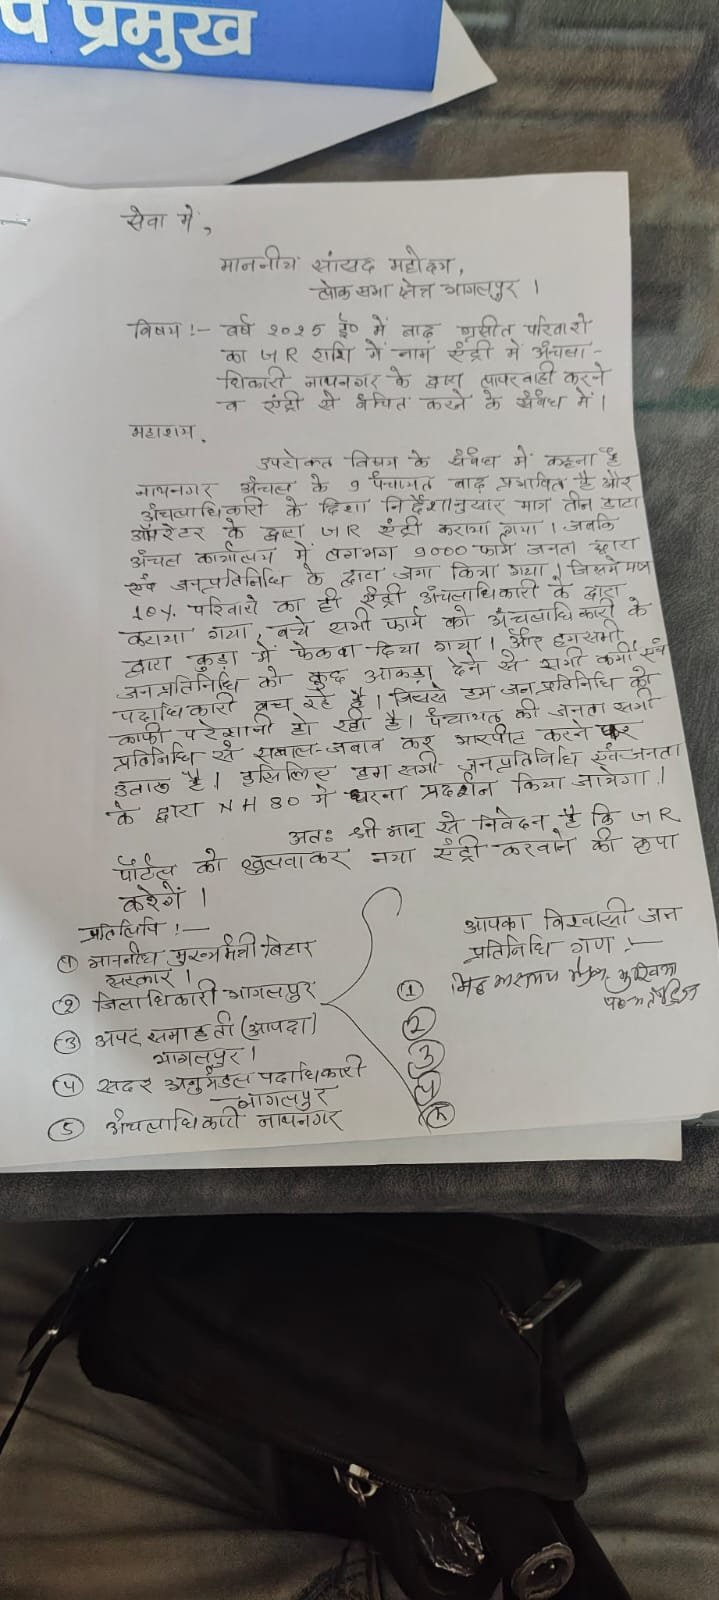 प प्रमुख
सेवा में,
माननीय सांसद महोदय,
लोक सभा क्षेत्र भागलपुर ।
विषय :- वर्ष २०२५ ई० में बाढ़ ग्रसीत परिवारो
का G R राशि में नाम एंट्री में अंचला-
धिकारी नाथनगर के द्वारा लापरवाही करने
व एंट्री से वंचित करने के संबंध में ।
महाशय,
उपरोक्त विषय के संबंध में कहना है
नाथनगर अंचल के 9 पंचायत बाढ़ प्रभावित है और
अंचलाधिकारी के दिशा निर्देशानुसार मात्र तीन डाटा
ऑपरेटर के द्वारा G R एंट्री कराया गया । जबकि
अंचल कार्यालय में लगभग 9000 फार्म जनता द्वारा
एवं जनप्रतिनिधि के द्वारा जमा किया गया । जिसमें मात्र
10% परिवारो का ही एंट्री अंचलाधिकारी के द्वारा
कराया गया, बचे सभी फार्म को अंचलाधिकारी के
द्वारा कुड़ा में फेकवा दिया गया । और हमसभी
जनप्रतिनिधि को कुछ आकड़ा देने से सभी कर्मी एवं
पदाधिकारी बच रहे है । जिससे हम जन प्रतिनिधि को
काफी परेशानी हो रही है । पंचायत की जनता सभी
प्रतिनिधि से सवाल-जवाब कर मारपीट करने पर
उतारू है । इसिलिए हम सभी जनप्रतिनिधि एवं जनता
के द्वारा NH 80 में धरना प्रदर्शन किया जायेगा ।
अतः श्री मान् से निवेदन है कि G R
पोर्टल को खुलवाकर नया एंट्री करवाने की कृपा
करेगें ।
प्रतिलिपि :-
① माननीय मुख्यमंत्री बिहार
सरकार ।
② जिलाधिकारी भागलपुर
③ अपर समाहर्ता (आपदा)
भागलपुर ।
④ सदर अनुमंडल पदाधिकारी
भागलपुर
⑤ अंचलाधिकारी नाथनगर
आपका विश्वासी जन
प्रतिनिधि गण :-
①
②
③
④
⑤